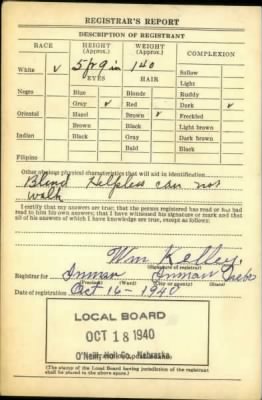 REGISTRAR'S REPORT
DESCRIPTION OF REGISTRANT
RACE HEIGHT (Approx.) WEIGHT (Approx.) COMPLEXION
White ✓ 5ft 9 in 140 Sallow
EYES HAIR Light
Negro Blue Blonde Ruddy
Gray ✓ Red Dark ✓
Oriental Hazel Brown ✓ Freckled
Brown Black Light brown
Indian Black Gray Dark brown
Bald Black
Filipino
Other obvious physical characteristics that will aid in identification
Blind Helpless can not
walk
I certify that my answers are true; that the person registered has read or has had
read to him his own answers; that I have witnessed his signature or mark and that
all of his answers of which I have knowledge are true, except as follows:
Wm Kelley
(Signature of registrar)
Registrar for Inman Inman Nebr
(Precinct) (Ward) (City or county) (State)
Date of registration Oct 16 - 1940
LOCAL BOARD
OCT 18 1940
O'Neill, Holt Co., Nebraska
(The stamp of the Local Board having jurisdiction of the registrant
shall be placed in the above space.)